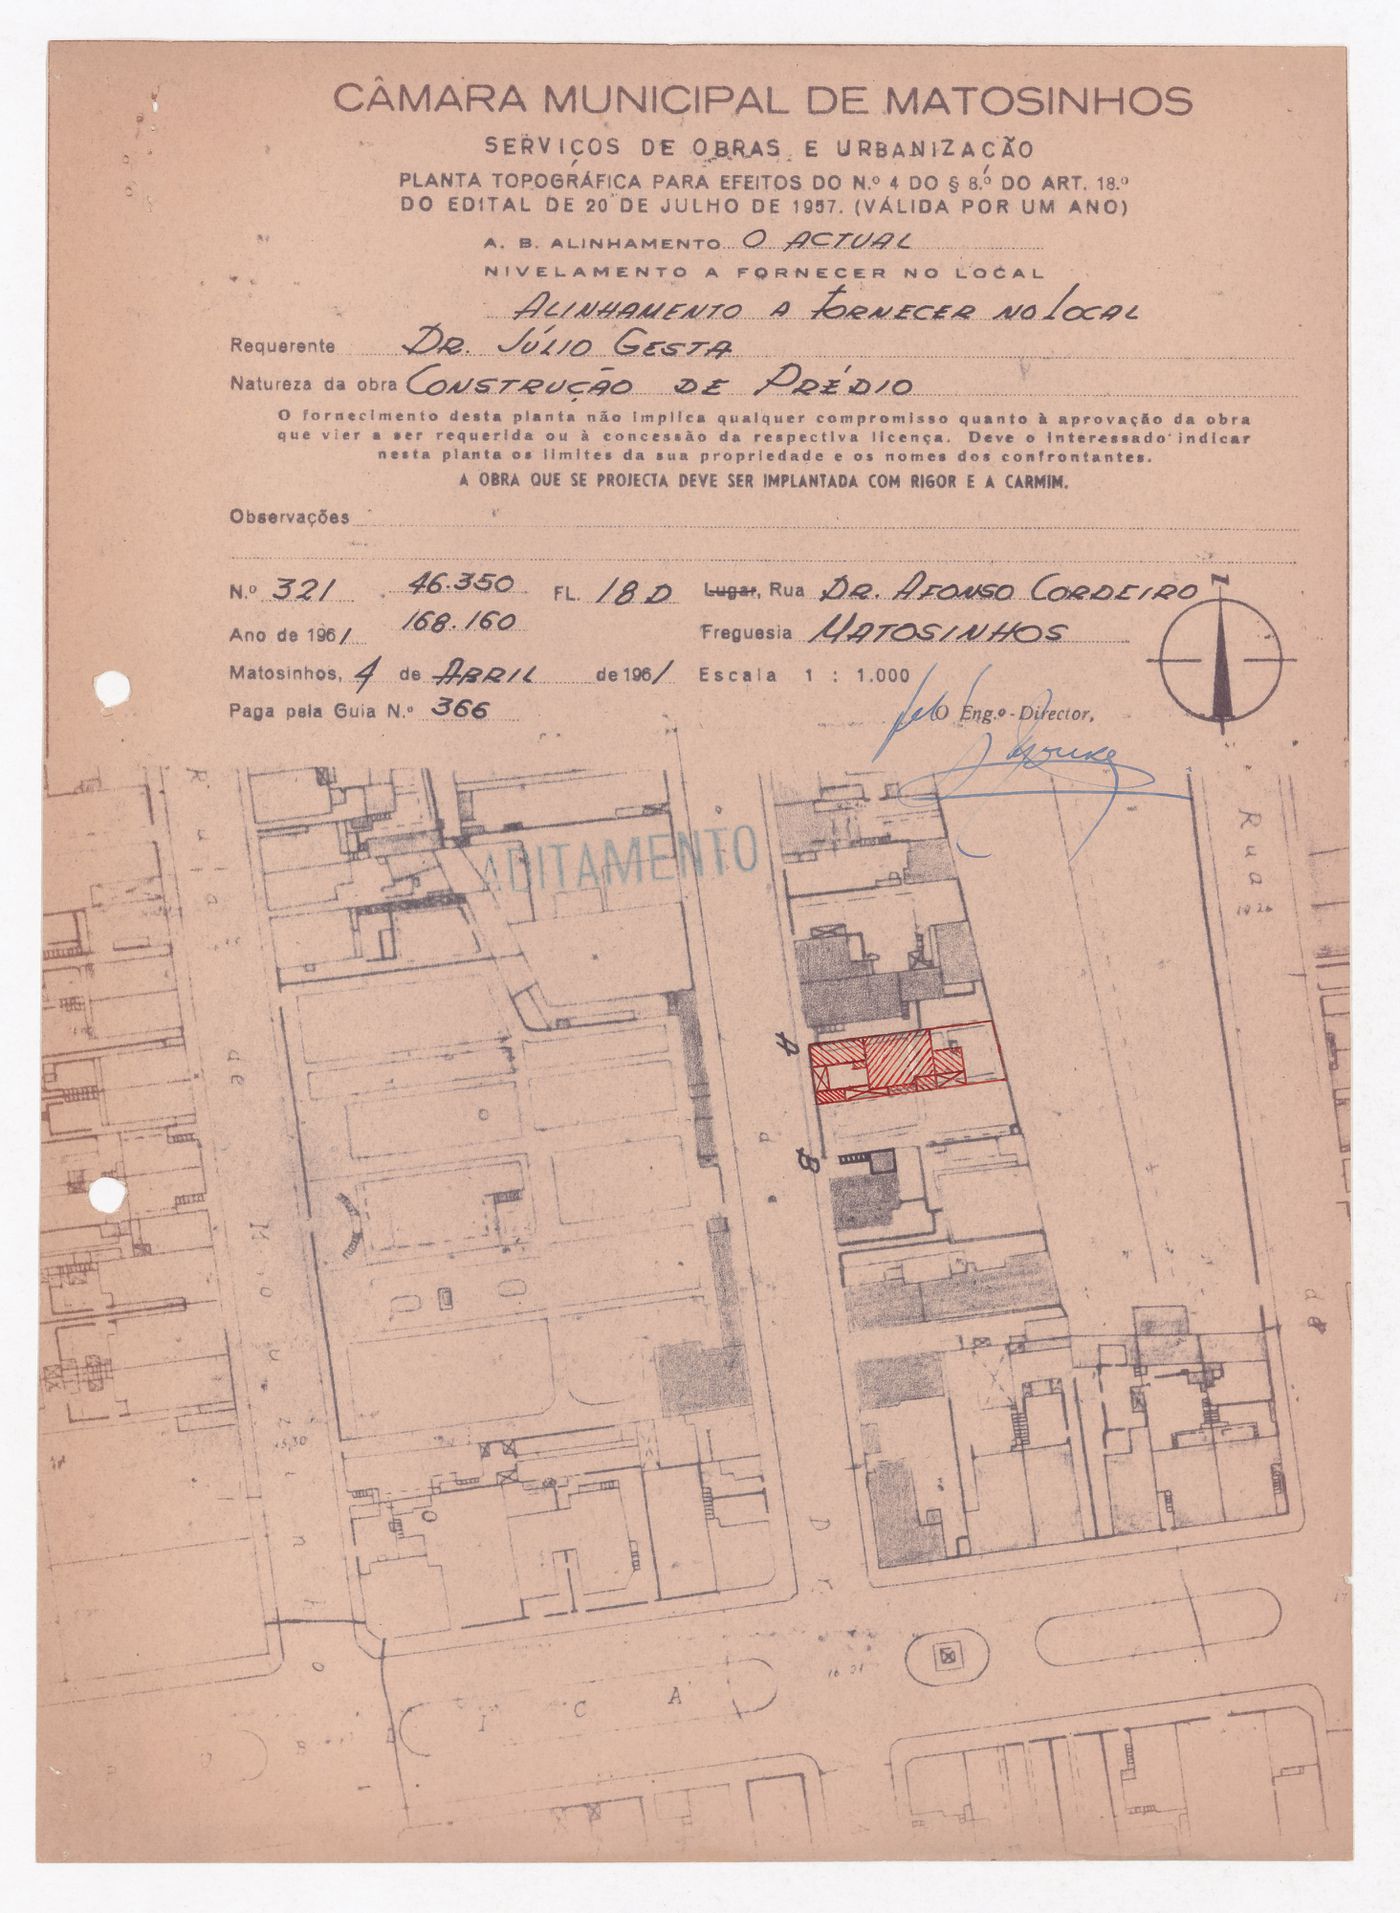 CÂMARA MUNICIPAL DE MATOSINHOS
SERVIÇOS DE OBRAS E URBANIZAÇÃO
PLANTA TOPOGRÁFICA PARA EFEITOS DO N.º 4 DO § 8.º DO ART. 18.º
DO EDITAL DE 20 DE JULHO DE 1957. (VÁLIDA POR UM ANO)
A. B. ALINHAMENTO O ACTUAL
NIVELAMENTO A FORNECER NO LOCAL
ALINHAMENTO A FORNECER NO LOCAL
Requerente DR. JÚLIO GESTA
Natureza da obra CONSTRUÇÃO DE PRÉDIO
O fornecimento desta planta não implica qualquer compromisso quanto à aprovação da obra
que vier a ser requerida ou à concessão da respectiva licença. Deve o interessado indicar
nesta planta os limites da sua propriedade e os nomes dos confrontantes.
A OBRA QUE SE PROJECTA DEVE SER IMPLANTADA COM RIGOR E A CARMIM.
Observações
N.º 321 46.350 FL. 18 D Lugar, Rua DR. AFONSO CORDEIRO
Ano de 1961 168.160 Freguesia MATOSINHOS
Matosinhos, 4 de ABRIL de 1961 Escala 1 : 1.000
Paga pela Guia N.º 366
pelo O Eng.º-Director,
N
ADITAMENTO
Rua
Rua
de
Moucinho
A
B
de
Dr.
I C A